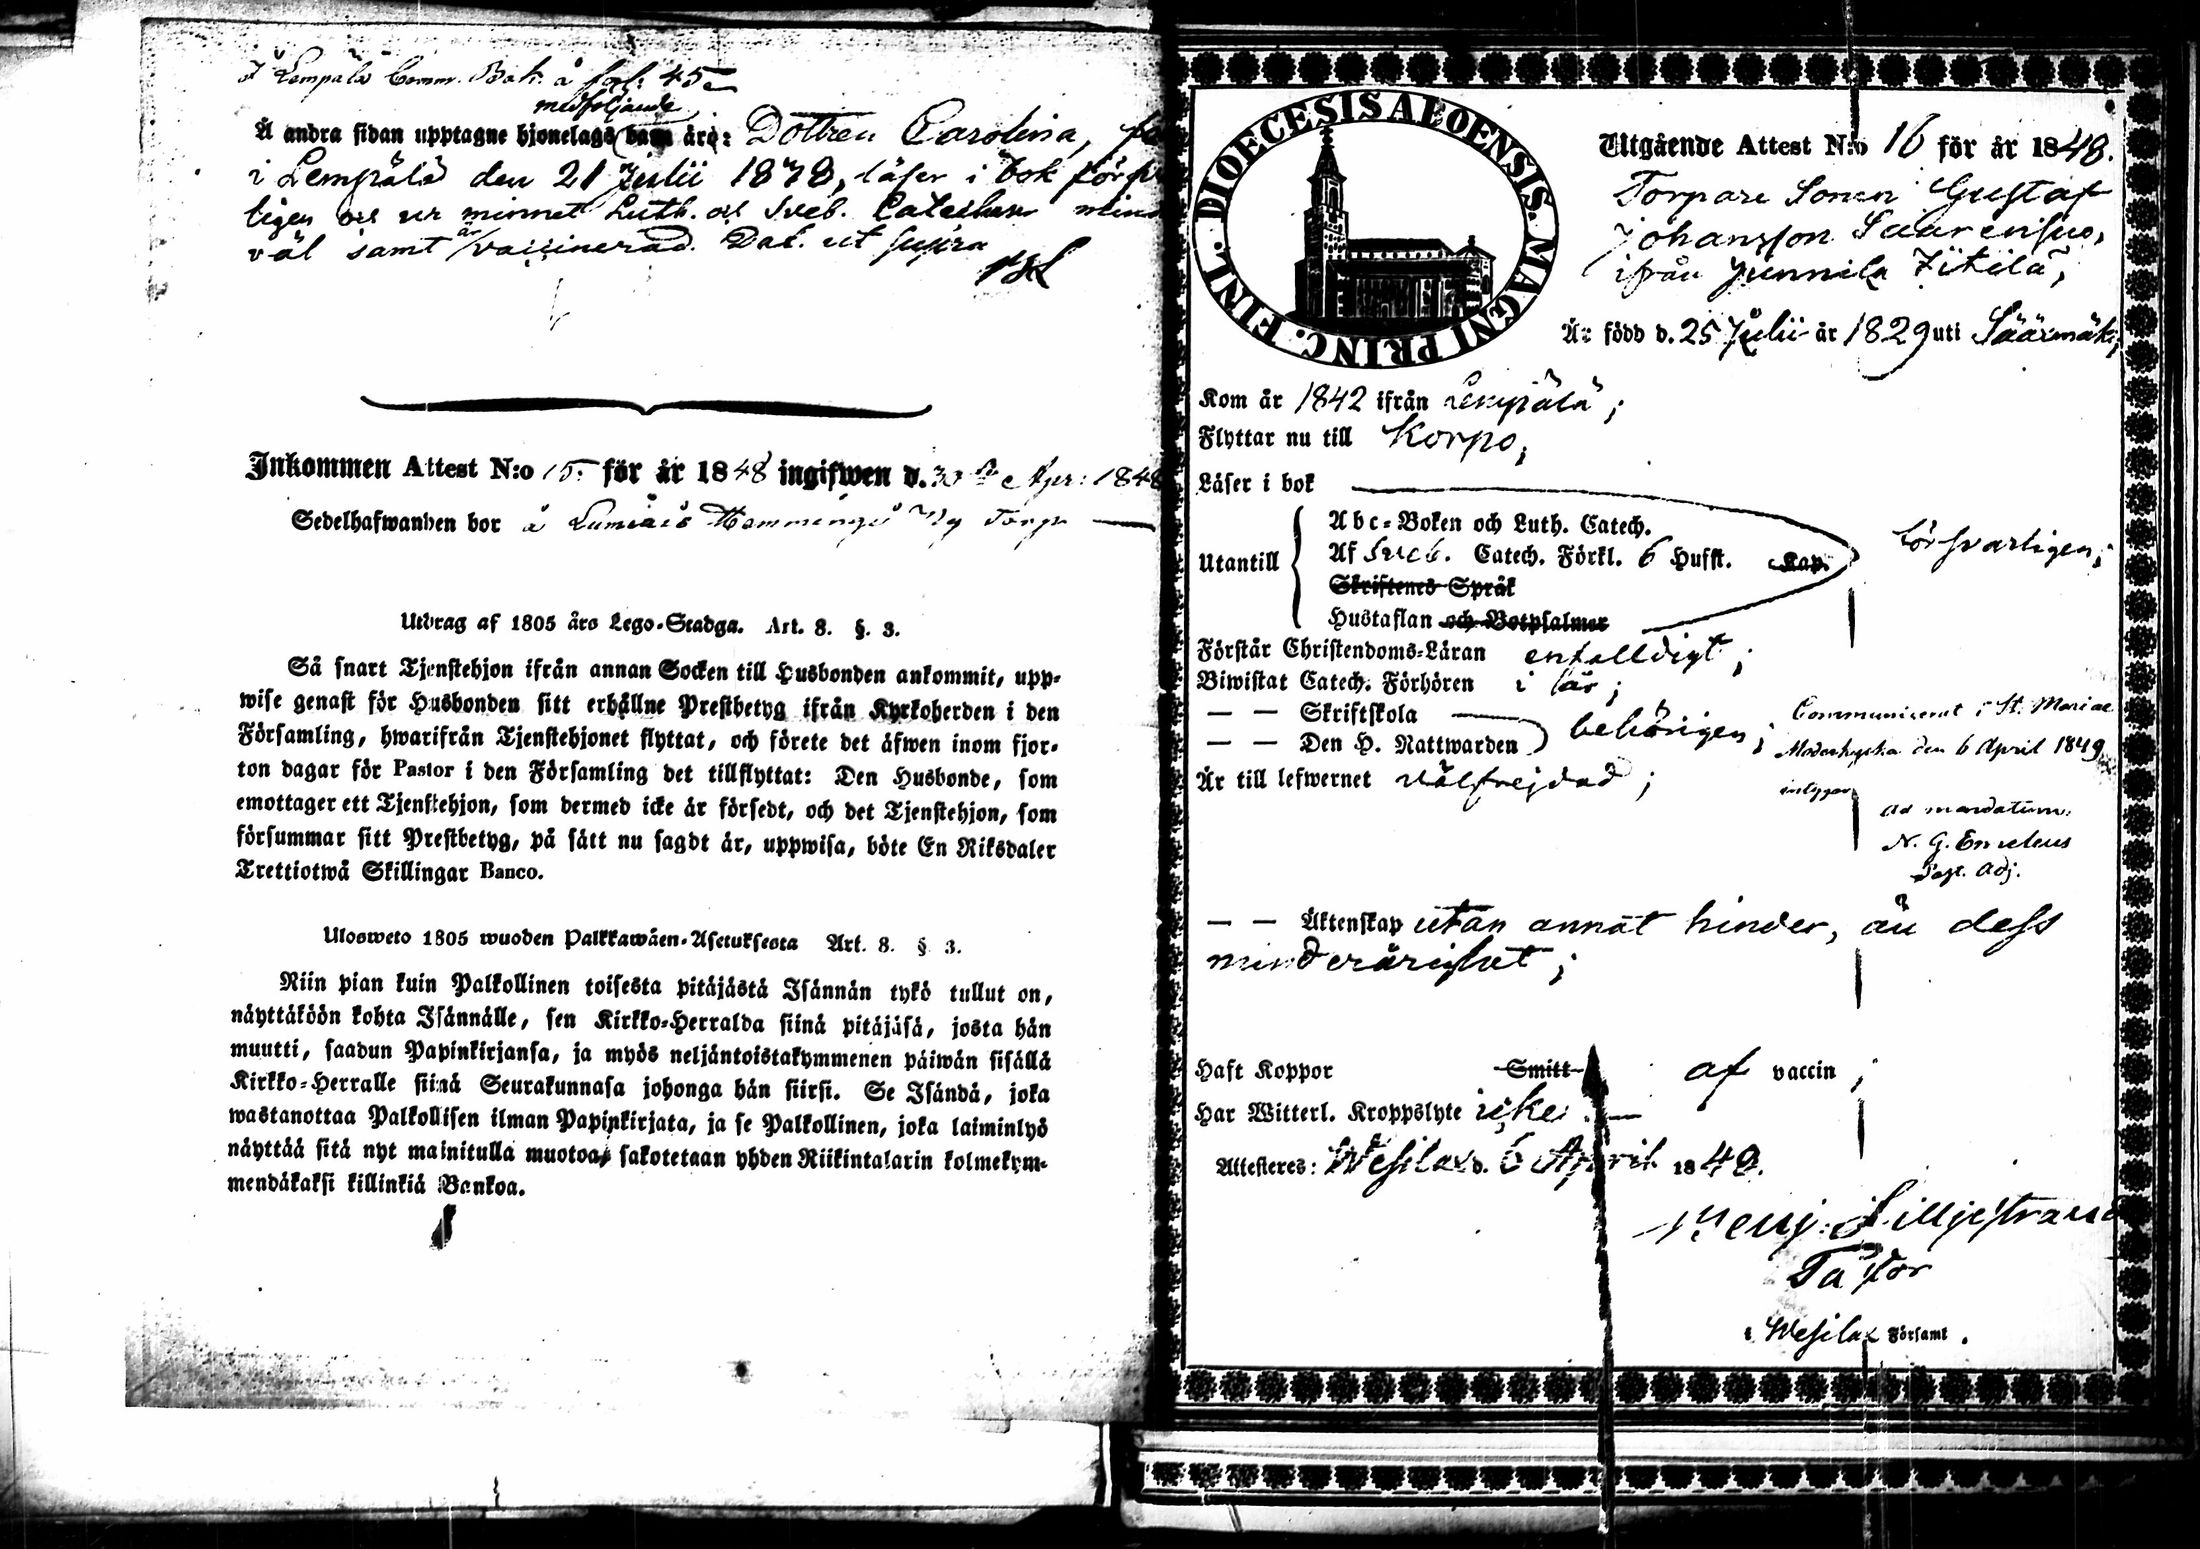 I Lempälä Comm. Bok å fol. 45
medföljande
Å andra sidan upptagne hjonelags barn äro: Dottren Carolina,
i Lempälä den 21 Julii 18 läser i bok förs
ligen och ur minnet Luth. och Sveb. Catechesen
väl samt är vaccinerad. Dat. ut supra
Inkommen Attest N:o 15. för år 1848 ingifwen d. 30 Apr: 1848
Sedelhafwanden bor å Torp
Utdrag af 1805 års Lego-Stadga. Art. 8. §. 3.
Så snart Tjenstehjon ifrån annan Socken till Husbonden ankommit, upp-
wise genast för Husbonden sitt erhållne Prestbetyg ifrån Kyrkoherden i den
Församling, hwarifrån Tjenstehjonet flyttat, och förete det äfwen inom fjor-
ton dagar för Pastor i den Församling det tillflyttat: Den Husbonde, som
emottager ett Tjenstehjon, som dermed icke är försedt, och det Tjenstehjon, som
försummar sitt Prestbetyg, på sätt nu sagdt är, uppwisa, böte En Riksdaler
Trettiotwå Skillingar Banco.
Ulosweto 1805 wuoden Palkkawäen-Asetuksesta Art. 8. § 3.
Niin pian kuin Palkollinen toisesta pitäjästä Isännän tykö tullut on,
näyttäköön kohta Isännälle, sen Kirkko-Herralda siinä pitäjäsä, josta hän
muutti, saadun Papinkirjansa, ja myös neljäntoistakymmenen päiwän sisällä
Kirkko-Herralle siinä Seurakunnasa johonga hän siirsi. Se Isändä, joka
wastanottaa Palkollisen ilman Papinkirjata, ja se Palkollinen, joka laiminlyö
näyttää sitä nyt mainitulla muotoa, sakotetaan yhden Riikintalarin kolmekym-
mendäkaksi killinkiä Bankoa.
DIOECESIS ABOENSIS. MAGNI PRINC. FINL.
Utgående Attest N:o 16 för år 1848.
Torpare Sonen Gustaf
Johansson
ifrån Junnila
Är född d. 25 Julii år 1829 uti Säärmäki,
Kom år 1842 ifrån Lempälä;
Flyttar nu till Korpo;
Läser i bok
Utantill
Abc-Boken och Luth. Catech.
Af Sveb. Catech. Förkl. 6 Hufst. Kap.
Skriftenes Språk
Hustaflan och Botpsalmer
försvarligen;
Förstår Christendoms-Läran enfalldigt;
Biwistat Catech. Förhören i år;
— — Skriftskola
— — Den H. Nattwarden
behörigen;
Communicerat i St. Mariae
Moderkyrka den 6 April 1849
intygar
Är till lefwernet välfrejdad;
ad mandatum
N. G.
Past. Adj.
— — Äktenskap utan annat hinder, än dess
minderårighet;
Haft Koppor Smitt af vaccin;
Har Witterl. Kroppslyte icke.
Attesteres: Wesilax d. 6 April 1848.
Benj. Lilljestrand
Pastor
i Wesilax Församl.